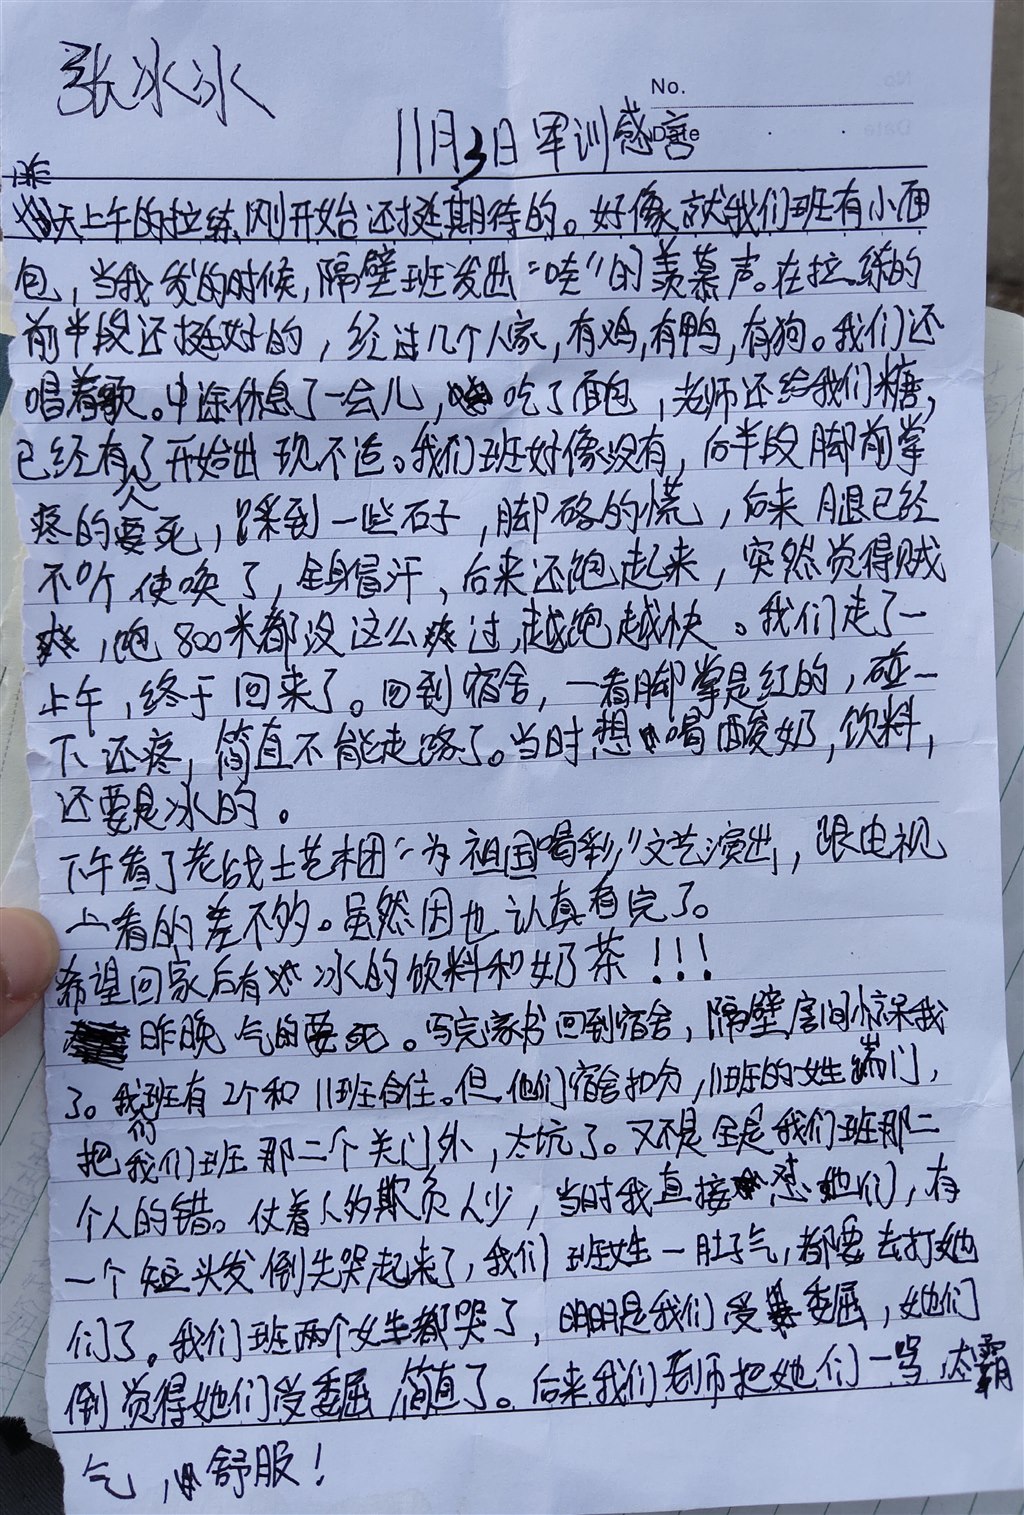 张冰冰
No.
Date
11月3日军训感言
昨
天上午的拉练刚开始台还挺期待的。好像就我们班有小面
包，当我发的时候，隔壁班发出“哇”的羡慕声。在拉练的
前半段还挺好的，经过几个人家，有鸡，有鸭，有狗。我们还
唱着歌。中途休息了一会儿，吃了面包，老师还给我们糖，
已经有人了开始出现不适。我们班好像没有，后半段脚前掌
疼的要死，踩到一些石子，脚硌的慌，后来腿已经
不听使唤了，全身冒汗，后来还跑起来，突然觉得贼
爽，跑800米都没这么爽过，越跑越快。我们走了一
上午，终于回来了。回到宿舍，一看脚掌是红的，碰一
下还疼，简直不能走路了。当时想喝酸奶，饮料，
还要是冰的。
下午看了老战士艺术团“为祖国喝彩”文艺演出，跟电视
上看的差不多。虽然困也认真看完了。
希望回家后有冰的饮料和奶茶！！！
昨晚气的要死。写完家书回到宿舍，隔壁房间惊呆我
了。我们班有2个和11班合住。但他们宿舍扣分，11班的女生踹门，
把我们班那二个关门外，太坑了。又不是全是我们班那二
个人的错。仗着人多欺负人少，当时我直接怼她们，有
一个短头发倒先哭起来了，我们班女生一肚子气，都要去打她
们了。我们班两个女生都哭了，明明是我们受委屈，她们
倒觉得她们受委屈简直了。后来我们老师把她们一骂，太霸
气，舒服！